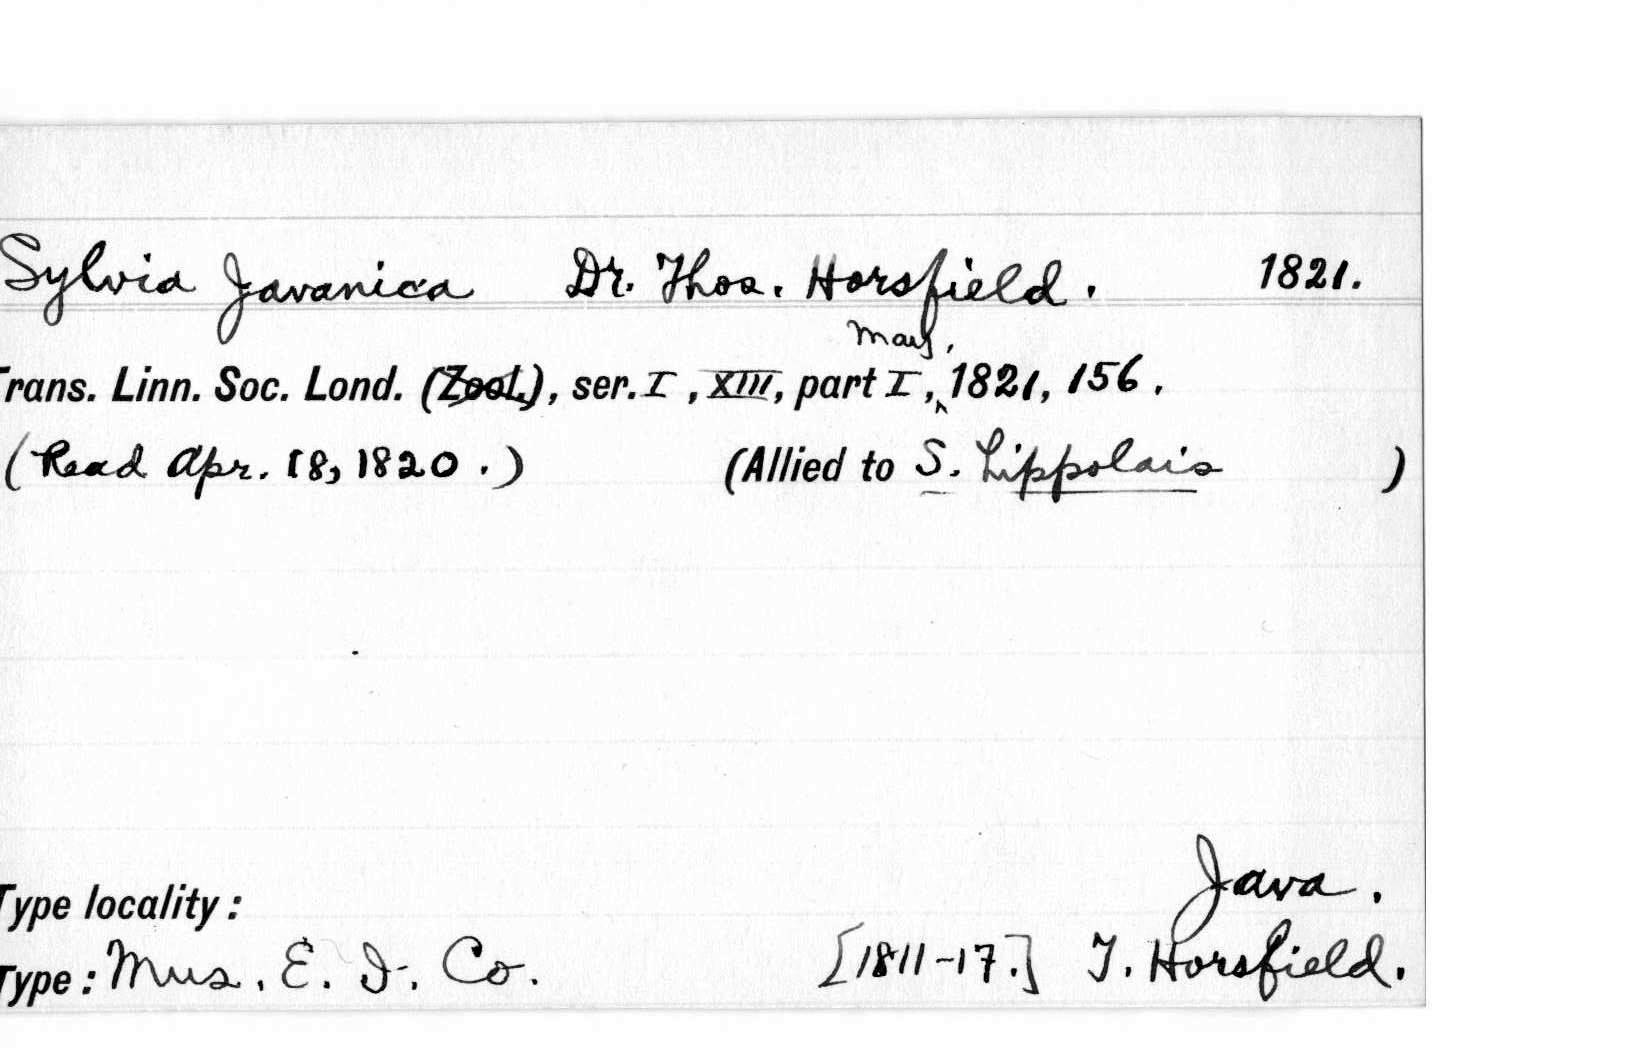 Sylvia Javanica Dr. Thos. Horsfield. 1821.
May,
Trans. Linn. Soc. Lond. (Zool.), ser. I, XIII, part I, 1821, 156.
(Read Apr. 18, 1820.) (Allied to S. hippolais)
Type locality: Java.
Type: Mus. E. I. Co. [1811-17.] T. Horsfield.